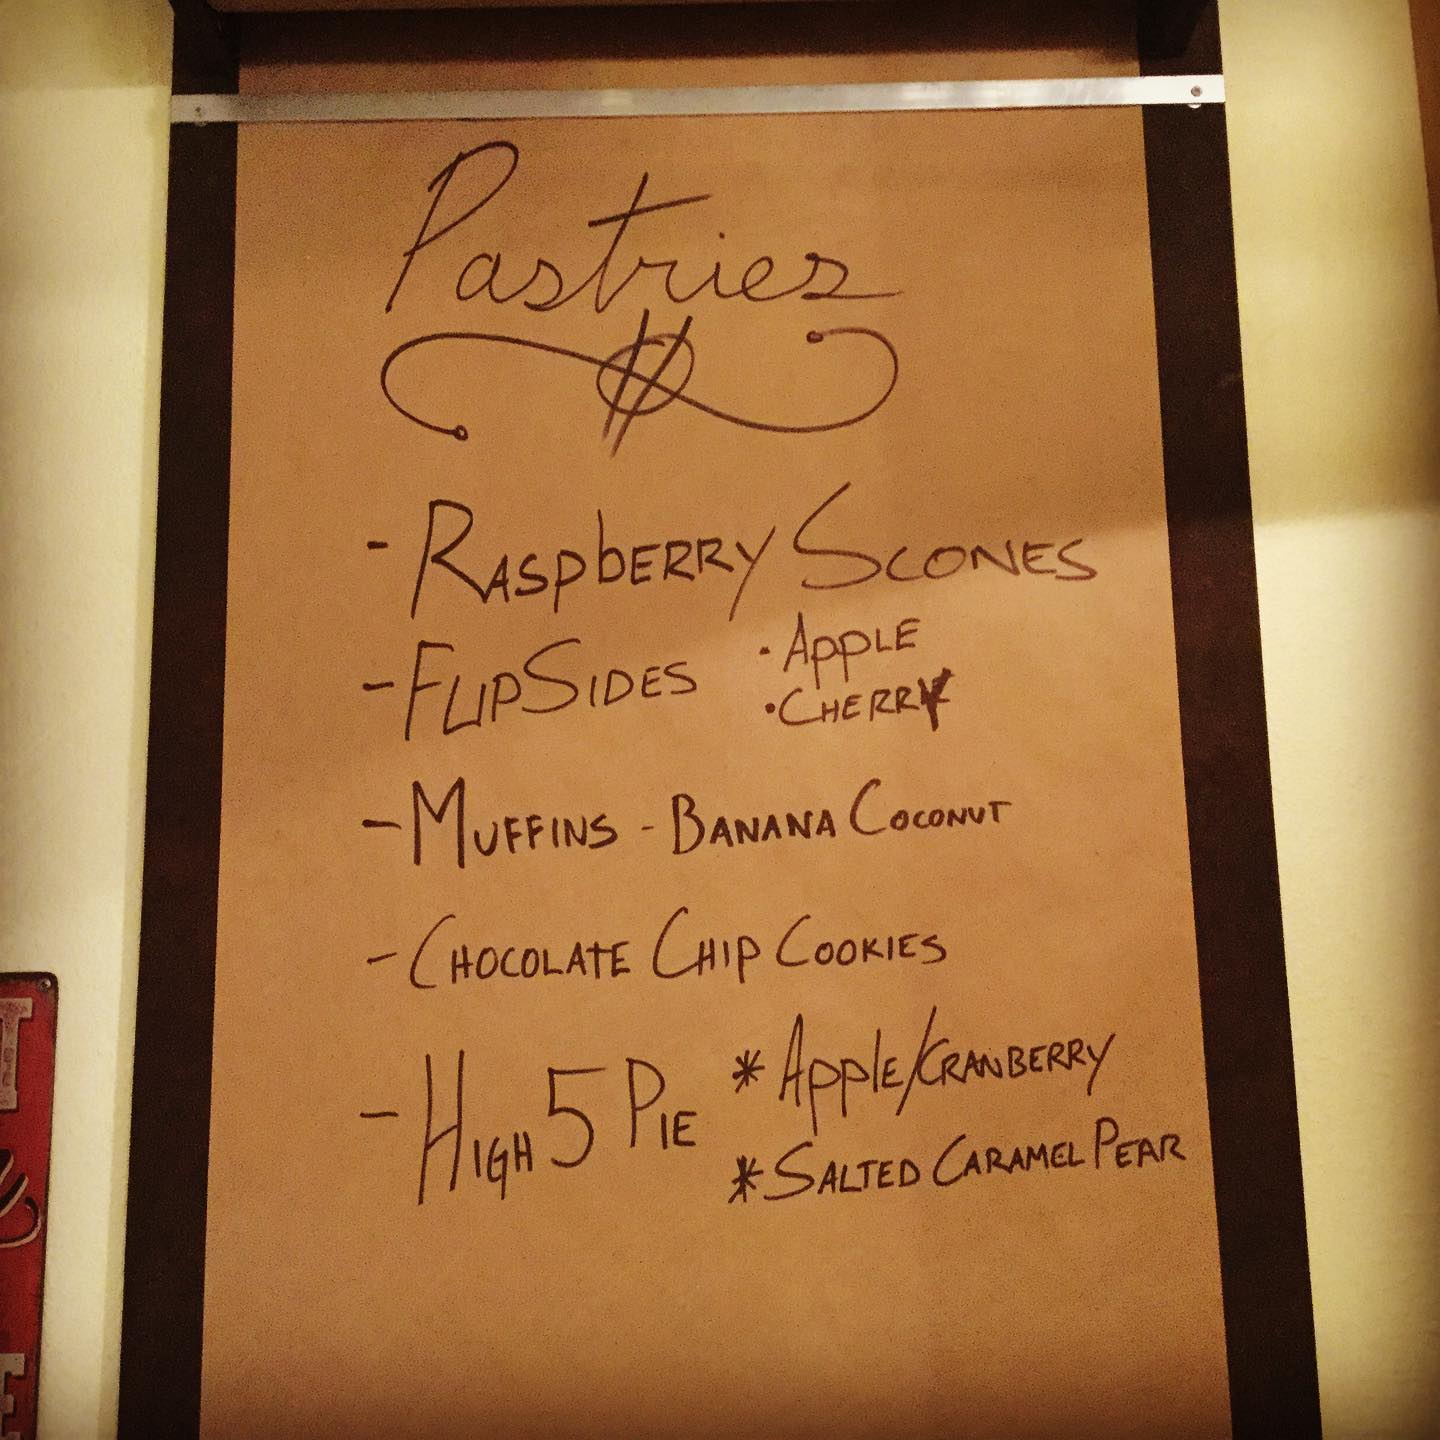 Pastries
- RASPBERRY SCONES
- FLIPSIDES
• APPLE
• CHERRY
- MUFFINS - BANANA COCONUT
- CHOCOLATE CHIP COOKIES
- HIGH 5 PIE
* APPLE/CRANBERRY
* SALTED CARAMEL PEAR